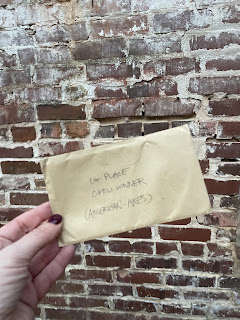 1st PLACE
CHILI WINNER
(AMERICAN-AXES)